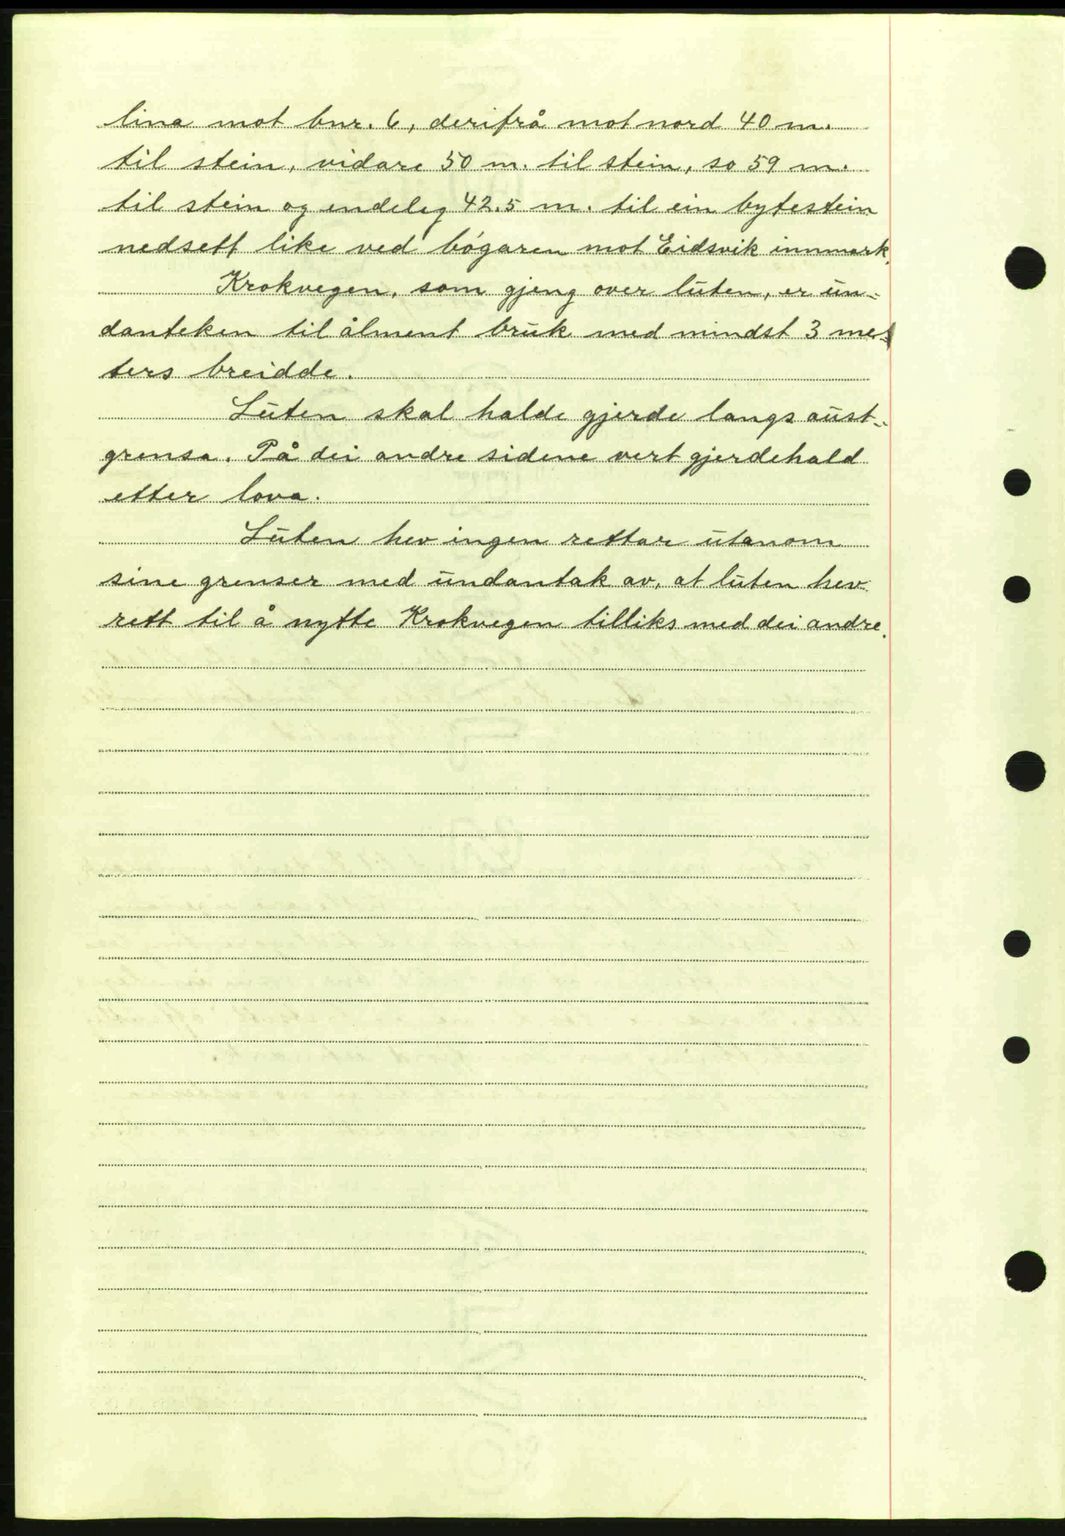 lina mot bnr. 6, derifrå mot nord 40 m.
til stein, vidare 50 m. til stein, so 59 m.
til stein og endeleg 42.5 m. til ein bytestein
nedsett like ved bøgaren mot Eidsvik innmark.
Krokvegen, som gjeng over luten, er un=
danteken til ålment bruk med mindst 3 me=
ters breidde.
Luten skal halde gjerde langs aust=
grensa. På dei andre sidene vert gjerdehald
etter lova.
Luten hev ingen rettar utanom
sine grenser med undantak av, at luten hev
rett til å nytte Krokvegen tilliks med dei andre.